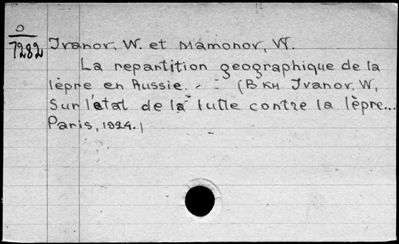 O
7282
Ivanov, W. et Mamonov, W.
La repantition geographique de la
lèpre en Russie. - = (Вкн Ivanov. W,
Sur l'etat de la lutte contre la lèpre...
Paris, 1924.)